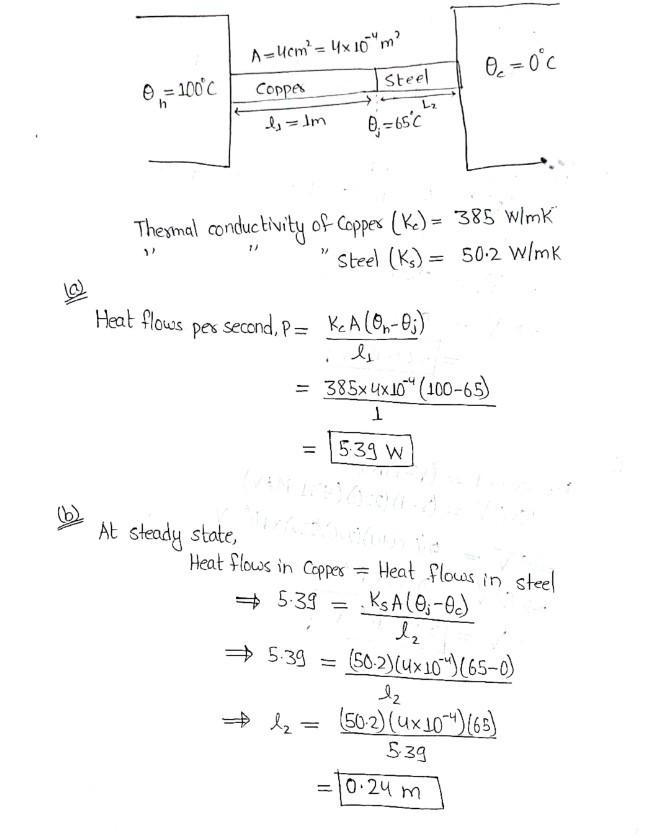 A = 4cm² = 4×10⁻⁴ m²
θh = 100°C
Copper
Steel
θc = 0°C
l₁ = 1m
θj = 65°C
L₂
Thermal conductivity of Copper (Kc) = 385 W/mK
" " " Steel (Ks) = 50.2 W/mK
(a)
Heat flows per second, P = KcA(θh-θj)/l₁
= 385×4×10⁻⁴(100-65)/1
= 5.39 W
(b)
At steady state,
Heat flows in Copper = Heat flows in steel
⇒ 5.39 = KsA(θj-θc)/l₂
⇒ 5.39 = (50.2)(4×10⁻⁴)(65-0)/l₂
⇒ l₂ = (50.2)(4×10⁻⁴)(65)/5.39
= 0.24 m